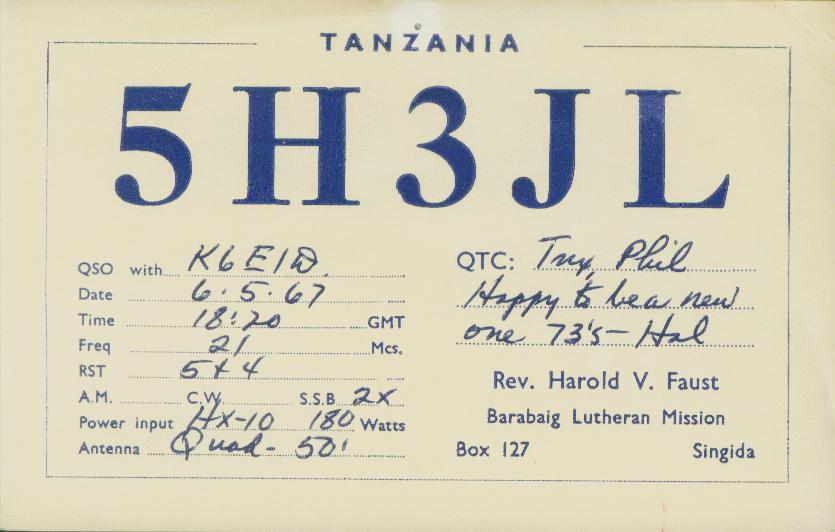 TANZANIA
5H3JL
QSO with K6EID.
Date 6.5.67
Time 18:20 GMT
Freq 21 Mcs.
RST 5+4
A.M. C.W. S.S.B 2X
Power input HX-10 180 Watts
Antenna Quad- 50'
QTC: Tnx, Phil
Happy to be a new
one 73's - Hal
Rev. Harold V. Faust
Barabaig Lutheran Mission
Box 127 Singida